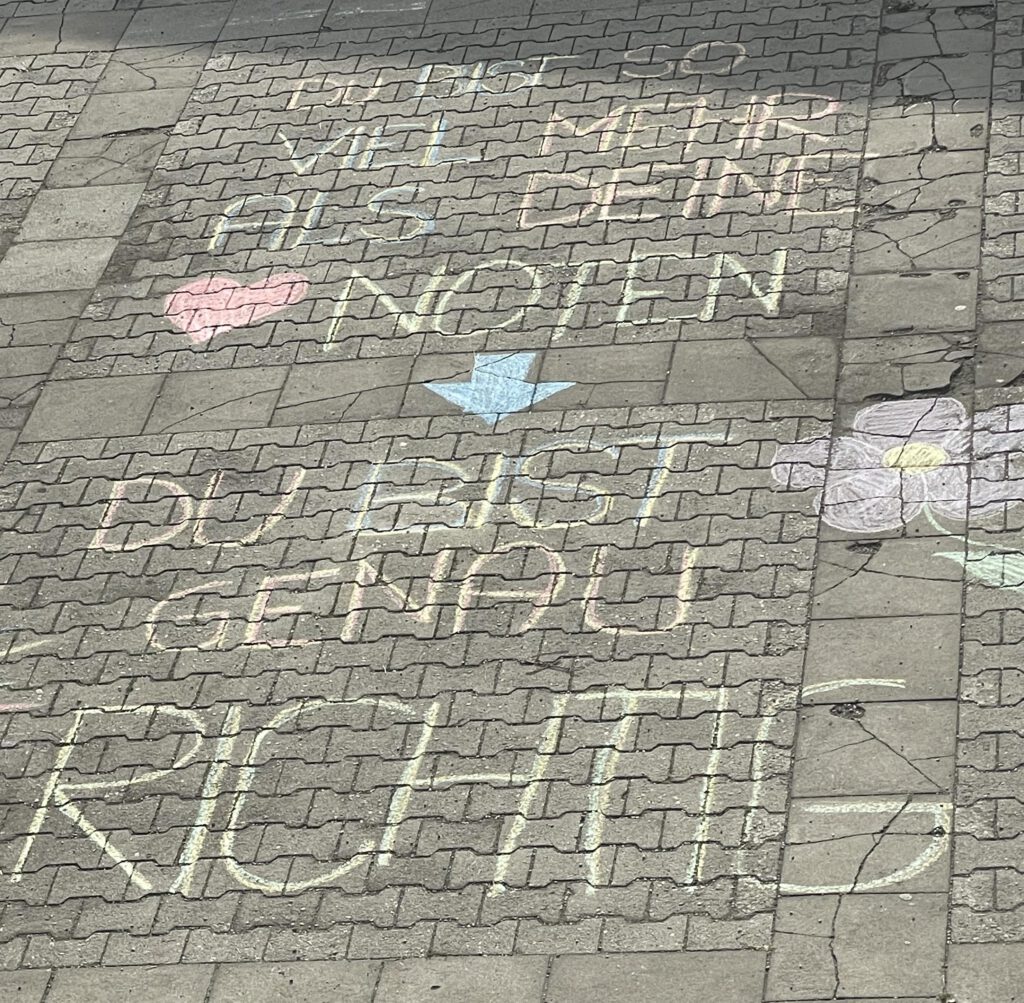 DU BIST SO
VIEL MEHR
ALS DEINE
NOTEN
DU BIST
GENAU
RICHTIG